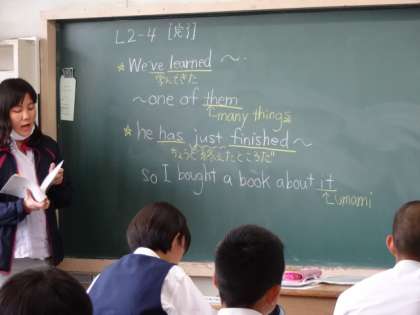 L2-4 [完了]
☆ We've learned ～.
学んできた
～one of them
↑many things
☆ he has just finished～
ちょうど終えたところだ
so I bought a book about it
↑umami